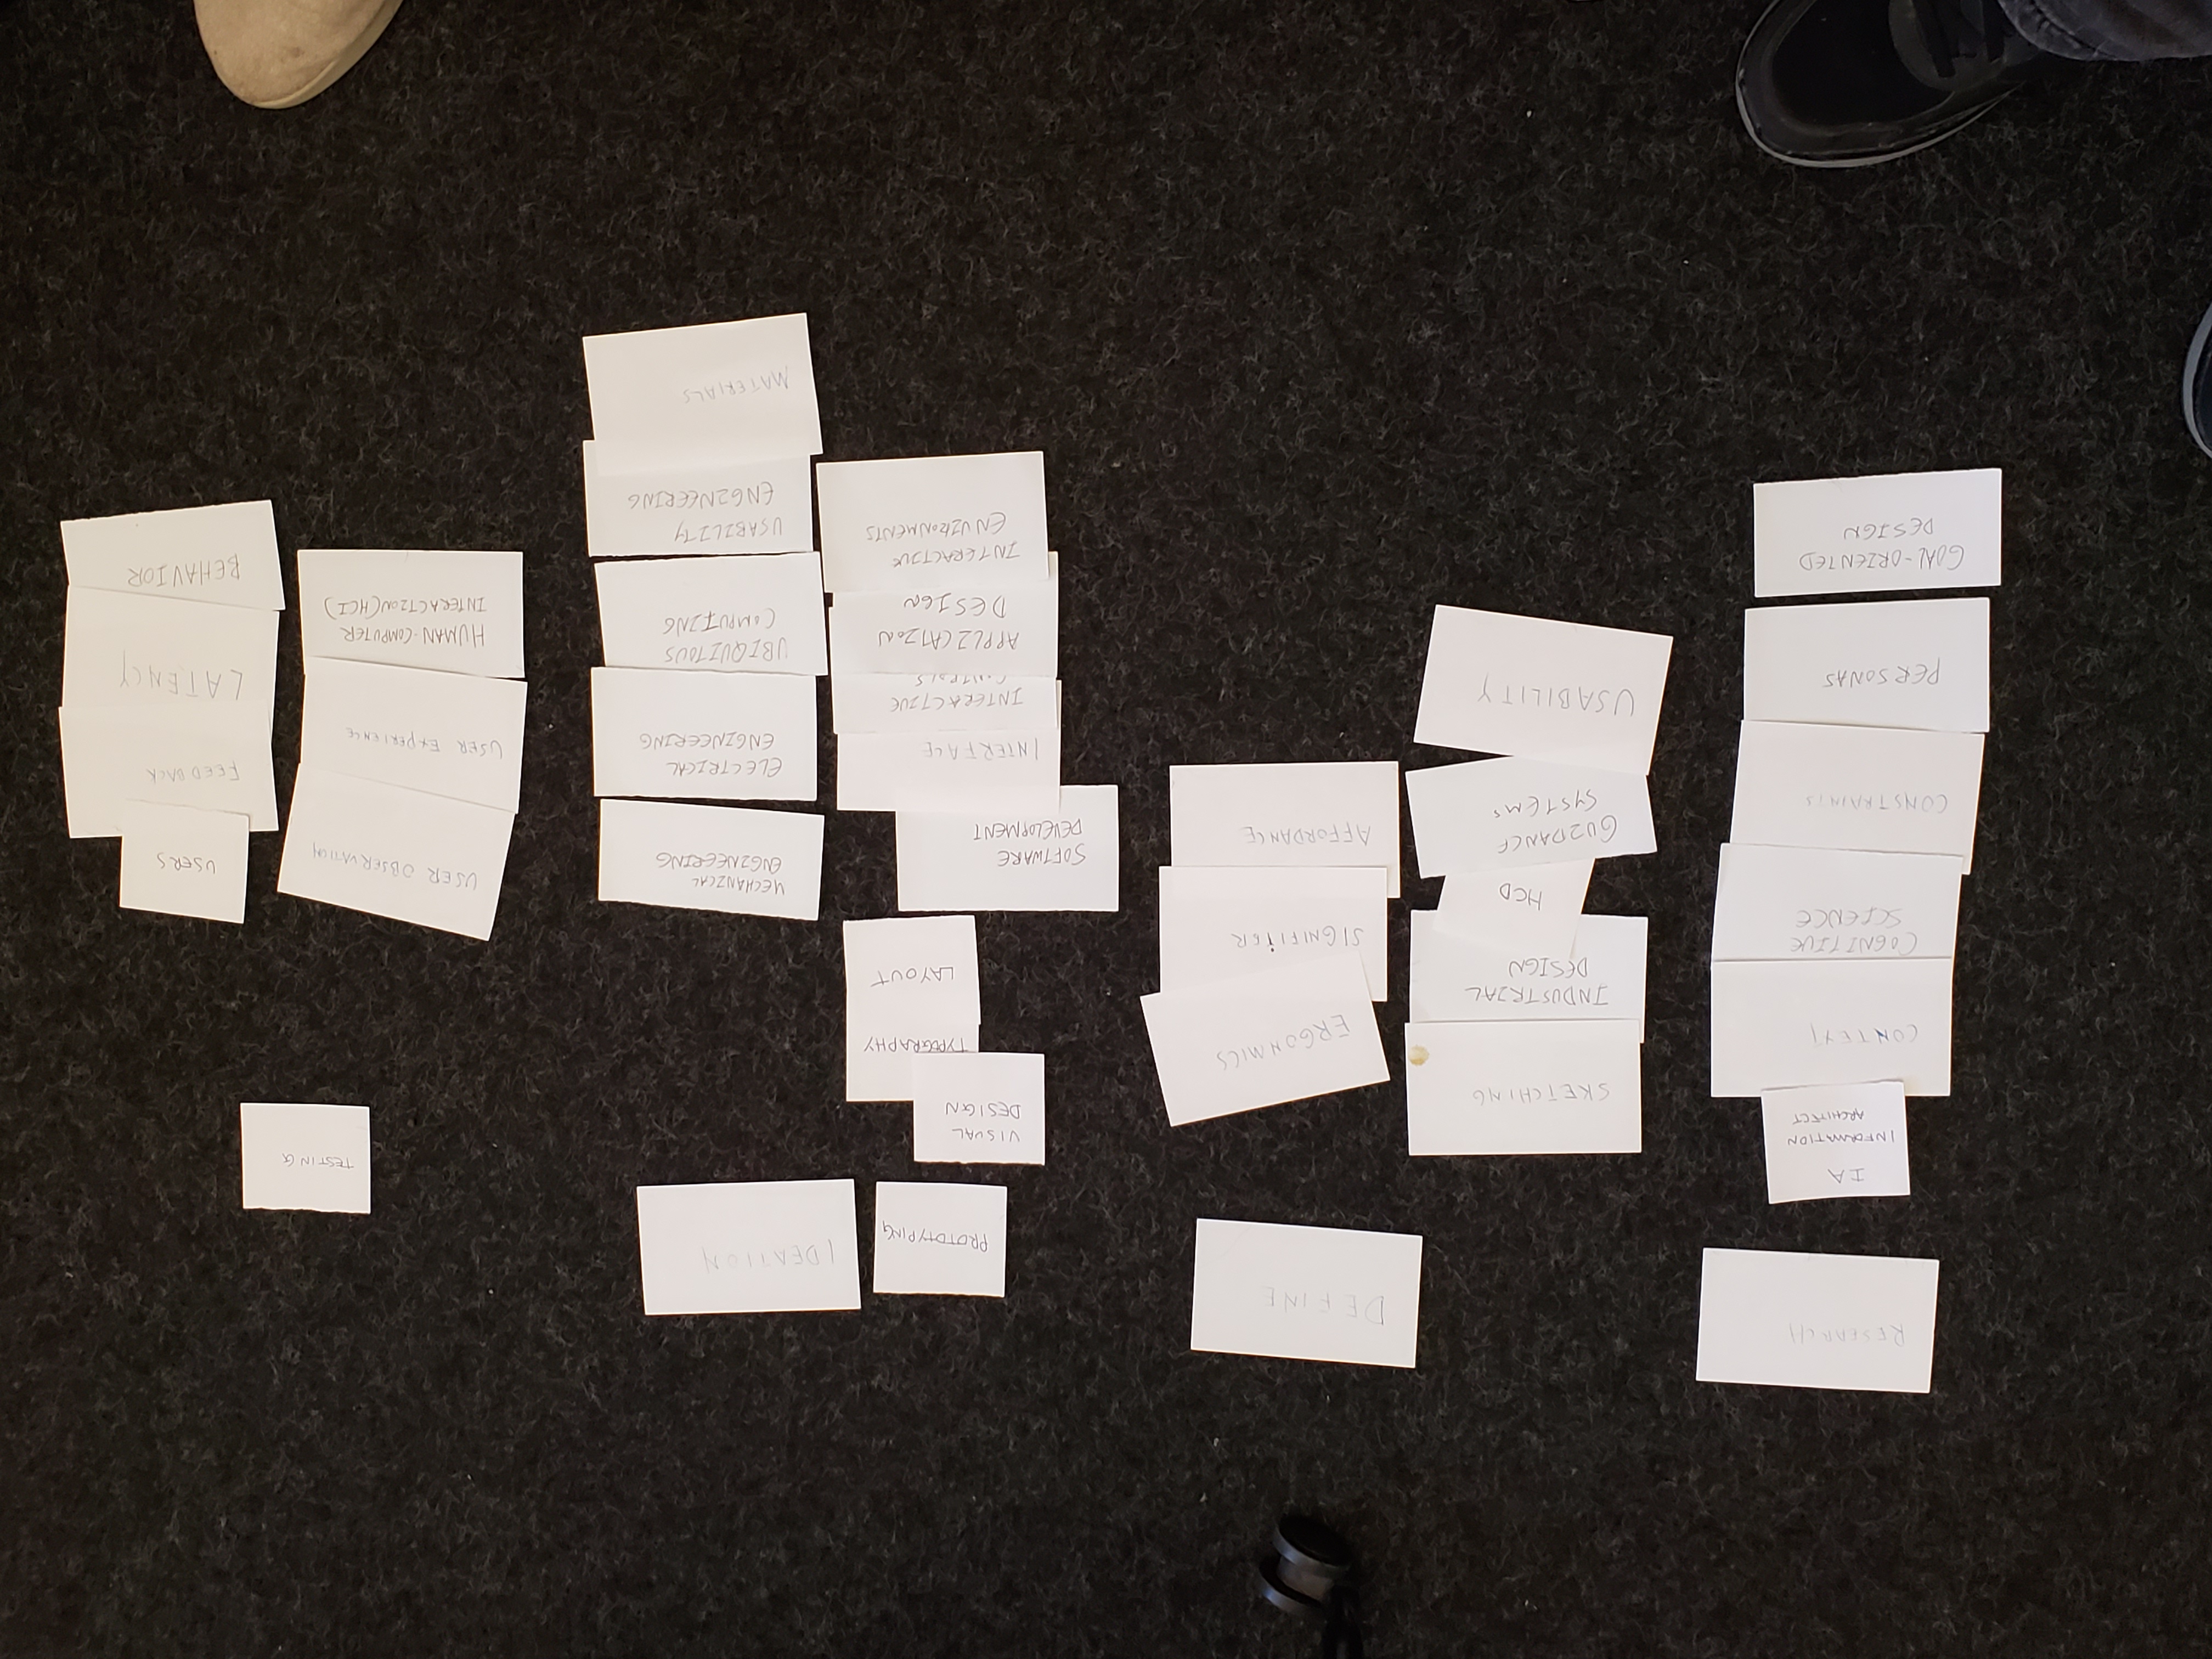 RESEARCH
DEFINE
PROTOTYPING
IDEATION
TESTING
IA
INFORMATION
ARCHITECT
CONTEXT
COGNITIVE
SCIENCE
CONSTRAINTS
PERSONAS
GOAL-ORIENTED
DESIGN
SKETCHING
INDUSTRIAL
DESIGN
HCD
GUIDANCE
SYSTEMS
USABILITY
ERGONMICS
SIGNIFIER
AFFORDANCE
VISUAL
DESIGN
TYPOGRAPHY
LAYOUT
SOFTWARE
DEVELOPMENT
INTERFACE
INTERACTIVE
CONTROLS
APPLICATION
DESIGN
INTERACTIVE
ENVIRONMENTS
MECHANICAL
ENGINEERING
ELECTRICAL
ENGINEERING
UBIQUITOUS
COMPUTING
USABILITY
ENGINEERING
MATERIALS
USER OBSERVATION
USER EXPERIENCE
HUMAN-COMPUTER
INTERACTION(HCI)
USERS
FEEDBACK
LATENCY
BEHAVIOR